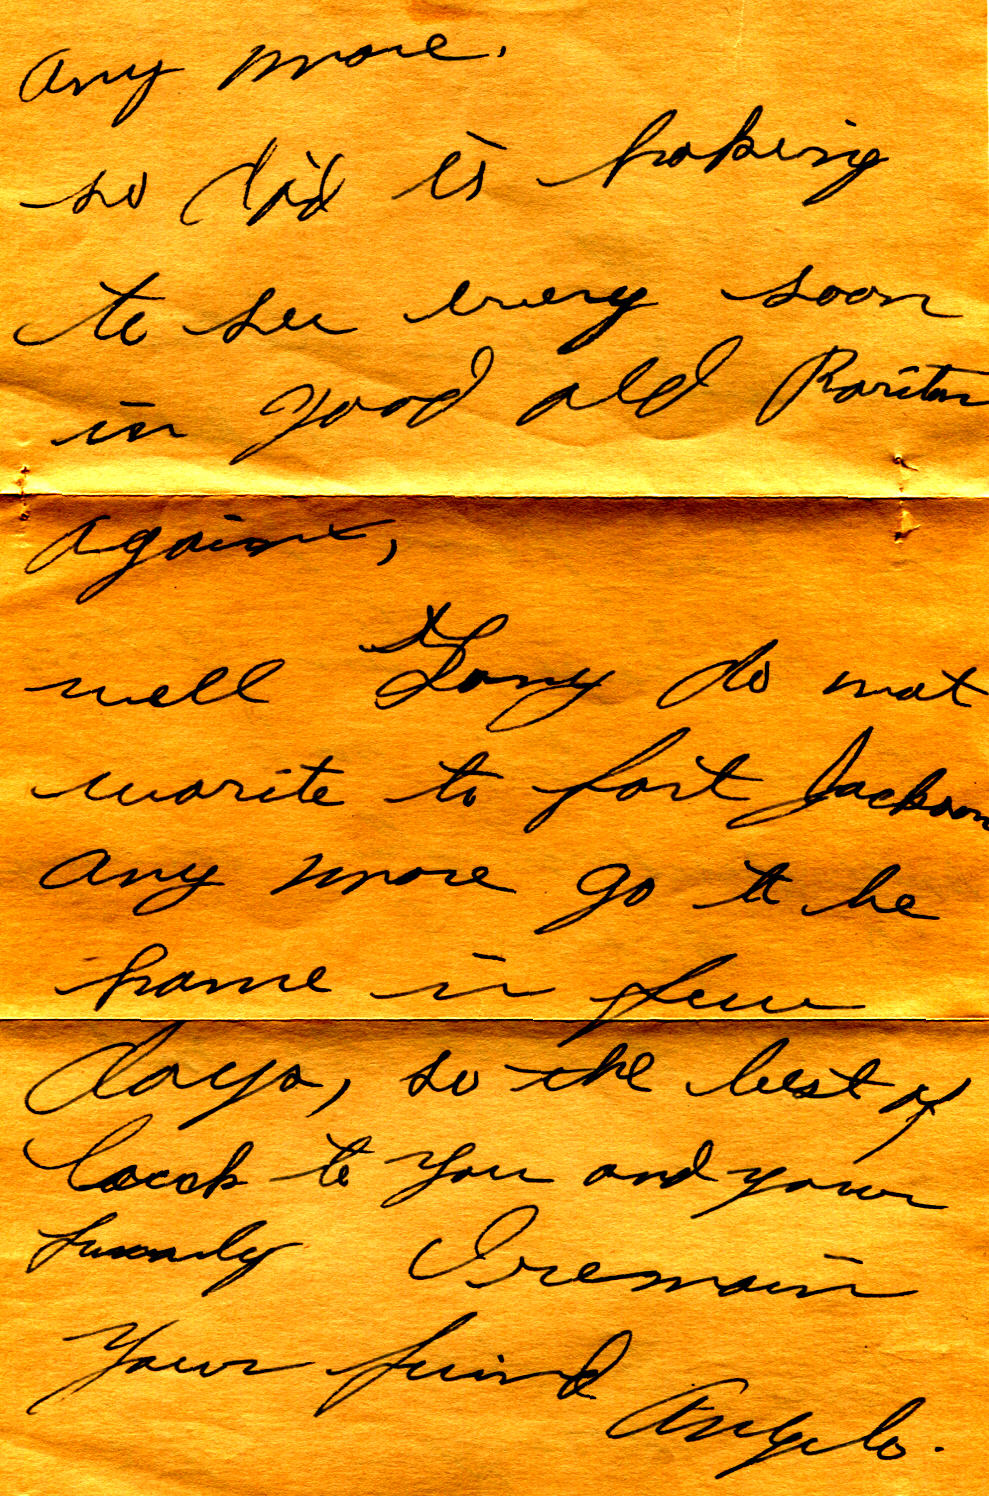 any more.
so did is hoping
to see every soon
in good old Raritan
againt,
well Tony do not
worite to fort Jackson
any more go to be
home in few
days, so the best of
locck to you and your
family I remain
your friend
Angelo.